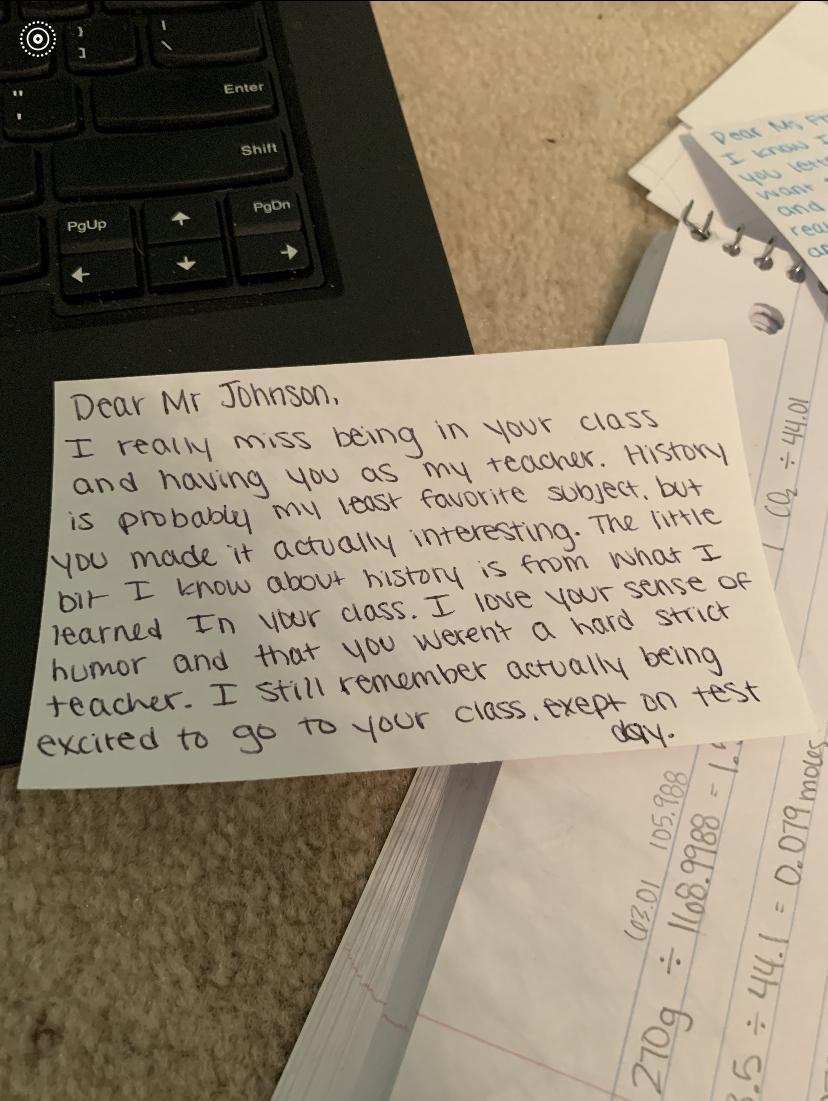 }
]
|
\
"
'
Enter
Shift
PgUp
PgDn
Dear Ms
I know I
you
want
and
Dear Mr Johnson,
I really miss being in your class
and having you as my teacher. History
is probably my least favorite subject, but
you made it actually interesting. The little
bit I know about history is from what I
learned In your class. I love your sense of
humor and that you werent a hard strict
teacher. I still remember actually being
excited to go to your class, exept on test
day.
CO₂ ÷ 44.01
105.988
270g ÷ 168.9988 =
÷ 44.1 = 0.079 moles